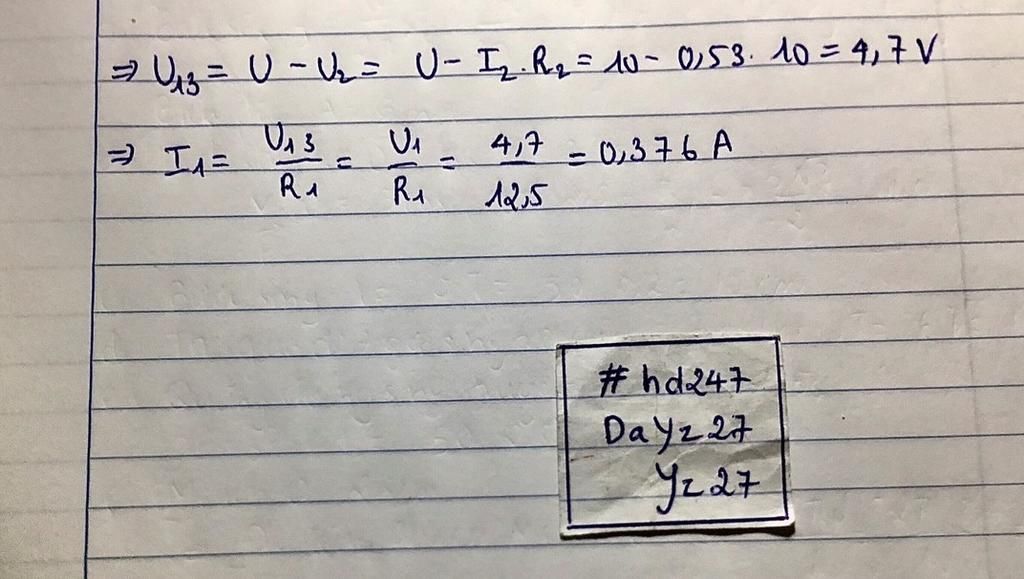 ⇒ U₁₃ = U - U₂ = U - I₂.R₂ = 10 - 0,53. 10 = 4,7 V
⇒ I₁ = U₁₃/R₁ = U₁/R₁ = 4,7/12,5 = 0,376 A
# hd247
DaYz27
Yz27